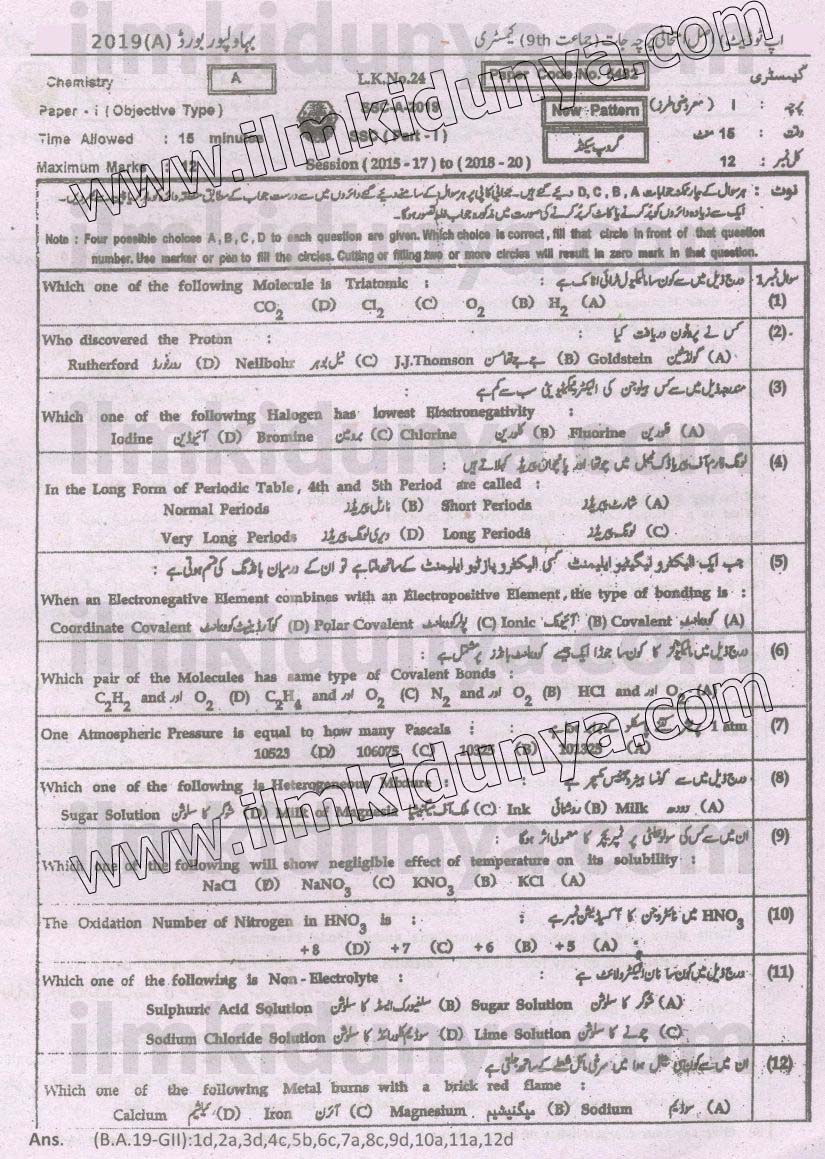 اپ ٹو ڈیٹ حل امتحانی پرچہ جات (جماعت 9th) کیمسٹری بہاولپور بورڈ 2019(A)
Chemistry A L.K.No.24 Paper Code No. کیمسٹری
Paper - i ( Objective Type ) SSC-A-2019 New Pattern پرچہ : I (معروضی طرز)
Time Allowed : 15 minutes SSC (Part - I) گروپ سیکنڈ وقت : 15 منٹ
Maximum Marks : 12 Session (2015 - 17) to (2018 - 20) کل نمبر : 12
www.ilmkidunya.com
نوٹ : ہر سوال کے چار ممکنہ جوابات D, C, B, A دیے گئے ہیں۔ جوابی کاپی پر ہر سوال کے سامنے دیے گئے دائروں میں سے درست جواب کے مطابق متعلقہ دائرہ کو
ایک سے زیادہ دائروں کو پُر کرنے یا کاٹ کر پُر کرنے کی صورت میں مذکورہ جواب غلط تصور ہوگا۔
Note : Four possible choices A , B , C , D to each question are given. Which choice is correct , fill that circle in front of that question
number. Use marker or pen to fill the circles. Cutting or filling two or more circles will result in zero mark in that question.
Which one of the following Molecule is Triatomic : درج ذیل میں سے کون سا مالیکیول ٹرائی اٹامک ہے : سوال نمبر 1
CO2 (D) Cl2 (C) O2 (B) H2 (A) (1)
Who discovered the Proton : کس نے پروٹون دریافت کیا (2)
Rutherford ردرفورڈ (D) Neilbohr نیل بوہر (C) J.J.Thomson جے جے تھامسن (B) Goldstein گولڈسٹین (A)
مندرجہ ذیل میں سے کس ہیلوجن کی الیکٹرونیگیٹیویٹی سب سے کم ہے (3)
Which one of the following Halogen has lowest Electronegativity :
Iodine آئیوڈین (D) Bromine برومین (C) Chlorine کلورین (B) Fluorine فلورین (A)
لونگ فارم آف پیریاڈک ٹیبل میں چوتھا اور پانچواں پیریڈ کہلاتے ہیں : (4)
In the Long Form of Periodic Table , 4th and 5th Period are called :
Normal Periods نارمل پیریڈز (B) Short Periods شارٹ پیریڈز (A)
Very Long Periods ویری لونگ پیریڈز (D) Long Periods لونگ پیریڈز (C)
جب ایک الیکٹرونیگیٹیو ایلیمنٹ کسی الیکٹروپازیٹو ایلیمنٹ کے ساتھ ملتا ہے تو ان کے درمیان بانڈنگ کی قسم ہوتی ہے : (5)
When an Electronegative Element combines with an Electropositive Element , the type of bonding is :
Coordinate Covalent کوآرڈینیٹ کوویلنٹ (D) Polar Covalent پولر کوویلنٹ (C) Ionic آئیونک (B) Covalent کوویلنٹ (A)
درج ذیل میں مالیکیولز کا کون سا جوڑا ایک جیسے کوویلنٹ بانڈز پر مشتمل ہے : (6)
Which pair of the Molecules has same type of Covalent Bonds :
C2H2 and اور O2 (D) C2H4 and اور O2 (C) N2 and اور O2 (B) HCl and اور O2 (A)
One Atmospheric Pressure is equal to how many Pascals : 1 atm (7)
10523 (D) 106075 (C) 10325 (B) 101325 (A)
Which one of the following is Heterogeneous Mixture : درج ذیل میں سے کونسا ہیٹروجینس مکسچر ہے : (8)
Sugar Solution شوگر کا سلوشن (D) Milk of Magnesia ملک آف میگنیشیا (C) Ink روشنائی (B) Milk دودھ (A)
ان میں سے کس کی سولوبلٹی پر ٹمپریچر کا معمولی اثر ہوگا : (9)
Which one of the following will show negligible effect of temperature on its solubility :
NaCl (D) NaNO3 (C) KNO3 (B) KCl (A)
The Oxidation Number of Nitrogen in HNO3 is : HNO3 میں نائٹروجن کا آکسیڈیشن نمبر ہے : (10)
+8 (D) +7 (C) +6 (B) +5 (A)
Which one of the following is Non - Electrolyte : درج ذیل میں کون سا نان الیکٹرولائٹ ہے : (11)
Sulphuric Acid Solution سلفیورک ایسڈ کا سلوشن (B) Sugar Solution شوگر کا سلوشن (A)
Sodium Chloride Solution سوڈیم کلورائڈ کا سلوشن (D) Lime Solution چونے کا سلوشن (C)
ان میں سے کون سی میٹل ہوا میں سرخی مائل شعلے کے ساتھ جلتی ہے (12)
Which one of the following Metal burns with a brick red flame :
Calcium کیلشیم (D) Iron آئرن (C) Magnesium میگنیشیم (B) Sodium سوڈیم (A)
www.ilmkidunya.com
Ans. (B.A.19-GII):1d,2a,3d,4c,5b,6c,7a,8c,9d,10a,11a,12d